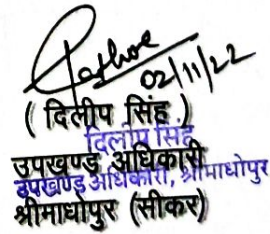 02/11/22
( दिलीप सिंह )
दिलीप सिंह
उपखण्ड अधिकारी
उपखण्ड अधिकारी, श्रीमाधोपुर
श्रीमाधोपुर (सीकर)